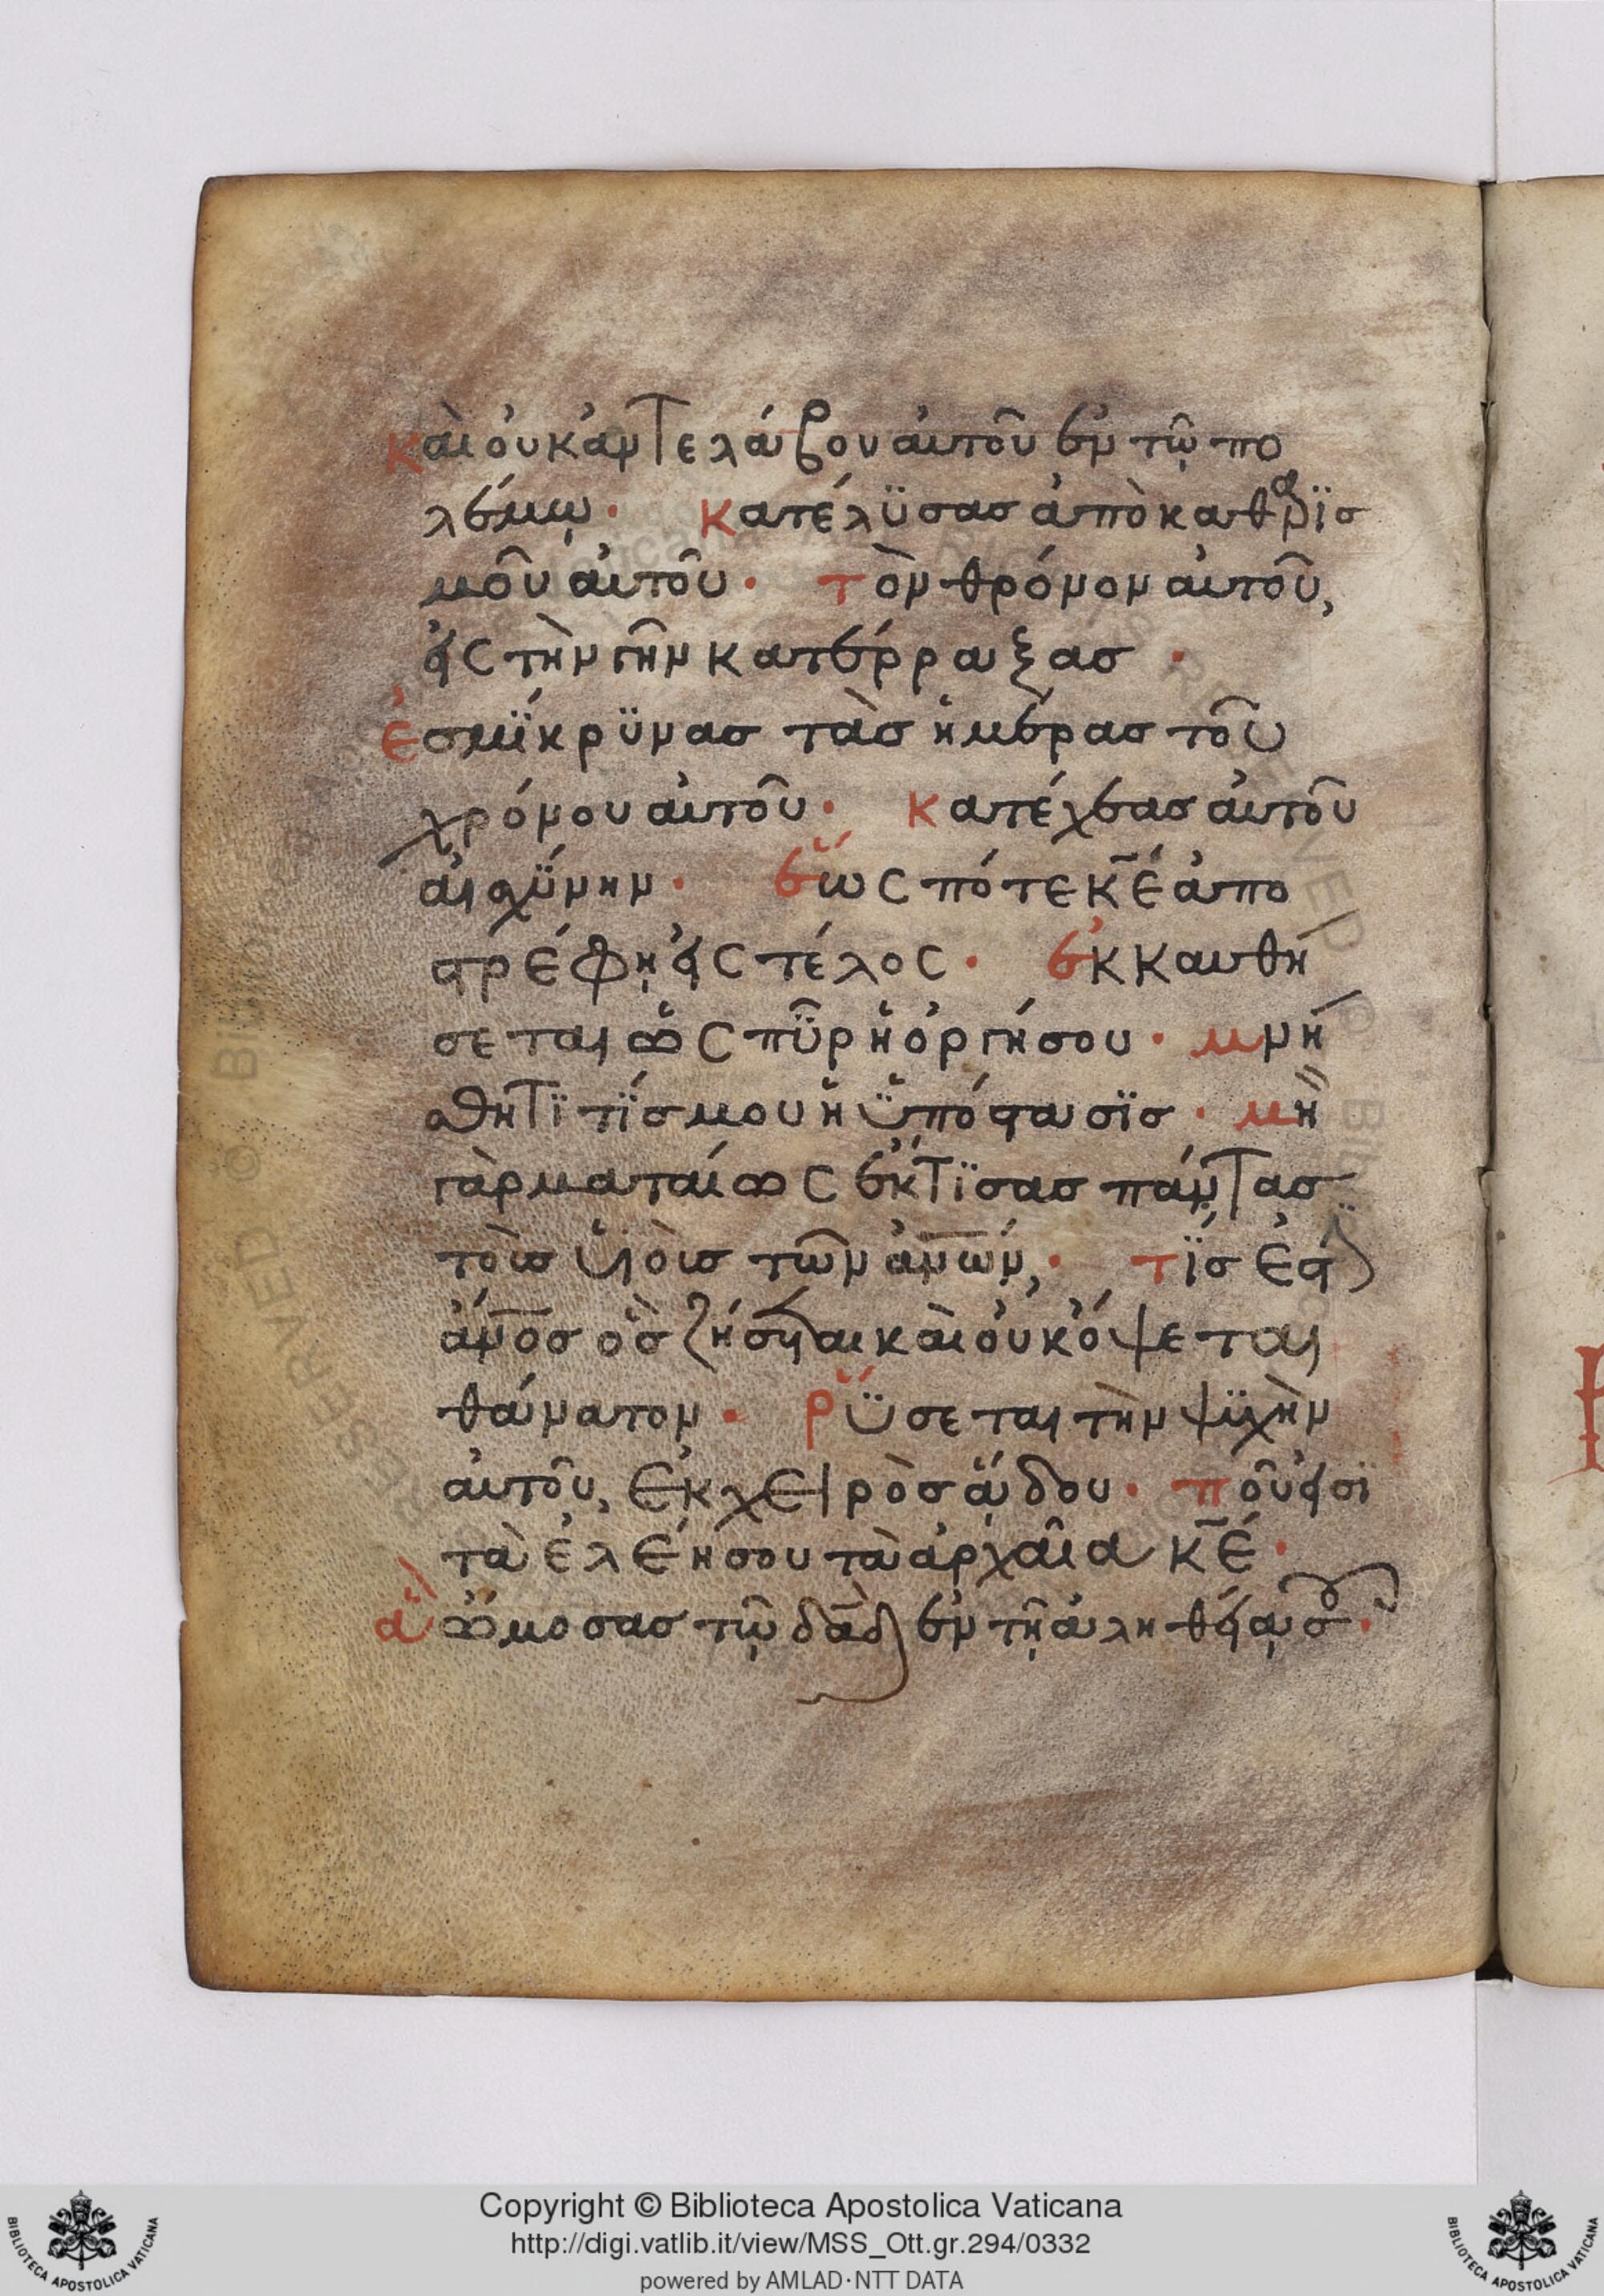 καὶ οὐκ ἀντελάβου αὐτοῦ ἐν τῶ πο
λέμω· Κατέλϋσας ἀπὸ καθαρϊσ
μοῦ αὐτοῦ· τὸν θρόνον αὐτοῦ,
εἰς τὴν γῆν κατέρραξας·
ἐσμΐκρϋνας τὰς ἡμέρας τοῦ
χρόνου αὐτοῦ· Κατέχεας αὐτοῦ
αἰσχΰνην· ἕως πότε κ̅ε̅ ἀπο
στρέφη εἰς τέλος· ἐκκαυθή
σεται ὡς πῦρ ἡ ὀργή σου· μνή
σθητϊ τίς μου ἡ ϋπόστασϊς· μὴ
γὰρ ματαίως ἔκτϊσας πάντας
τοὺς υἱοὺς τῶν ἀν̅ω̅ν, · τΐς ἐστϊν
ἄν̅ο̅ς ὃς ζήσεται καὶ οὐκ ὄψεται
θάνατον· ρϋσεται τὴν ψϋχὴν
αὐτοῦ, ἐκ χειρὸς ἅδου· ποῦ εἰσϊ
τὰ ἐλέη σου τὰ ἀρχαῖα κ̅ε̅·
ἃ ὤμοσας τῶ δα̅δ̅ ἐν τῆ ἀληθείᾳ σου·
Copyright © Biblioteca Apostolica Vaticana
http://digi.vatlib.it/view/MSS_Ott.gr.294/0332
powered by AMLAD·NTT DATA
BIBLIOTECA APOSTOLICA VATICANA
BIBLIOTECA APOSTOLICA VATICANA